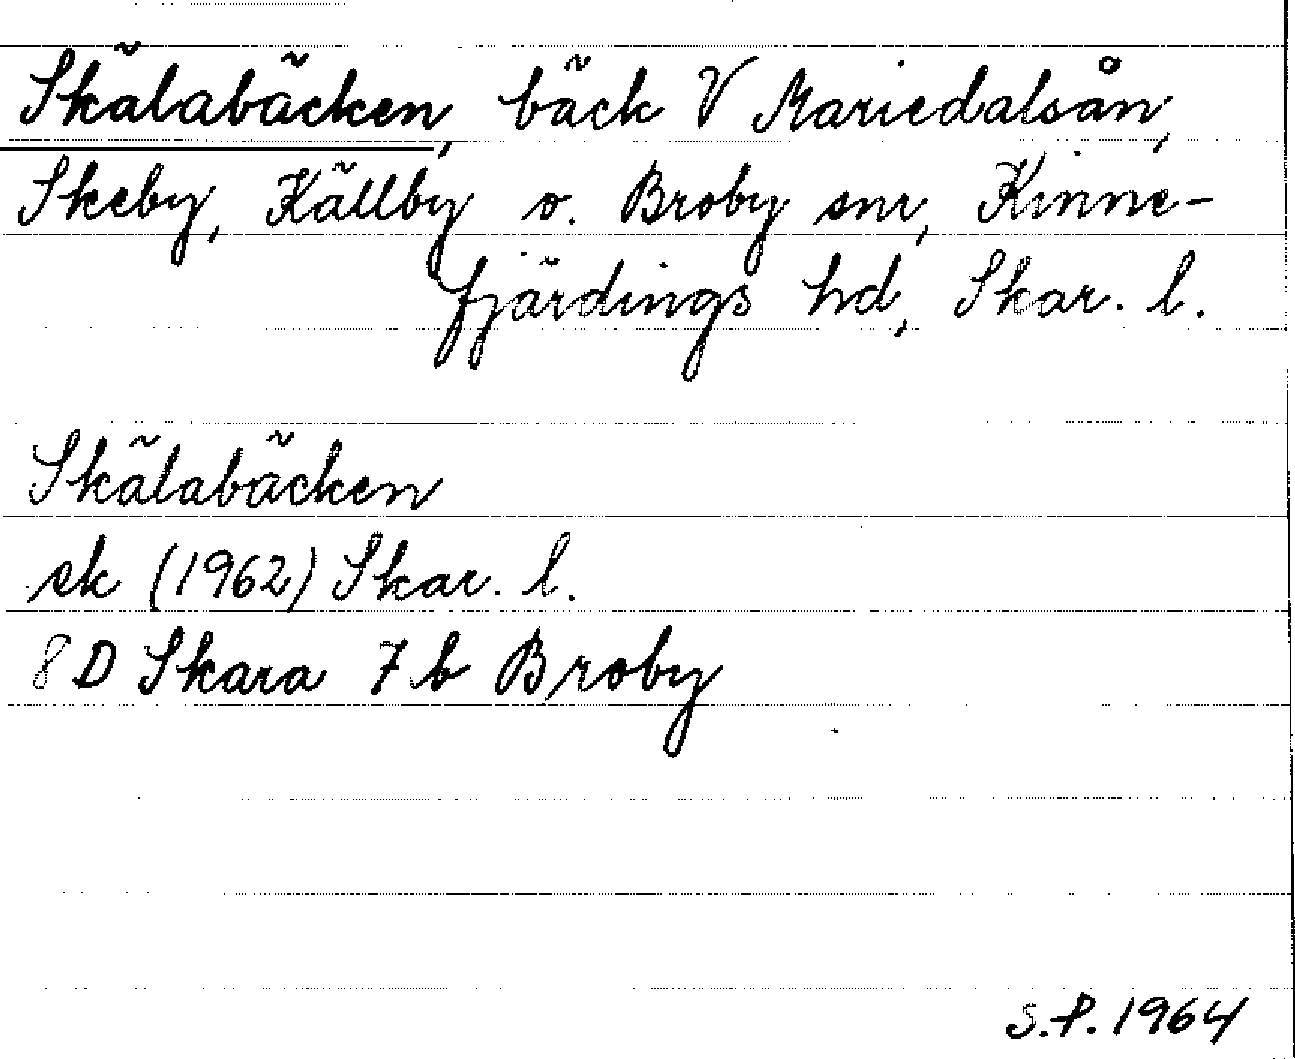 Skälabäcken, bäck V Mariedalsån,
Skeby, Källby o. Broby snr, Kinne-
fjärdings hd, Skar. l.
Skälabäcken
ek (1962) Skar. l.
8 D Skara 7 b Broby
S.P. 1964